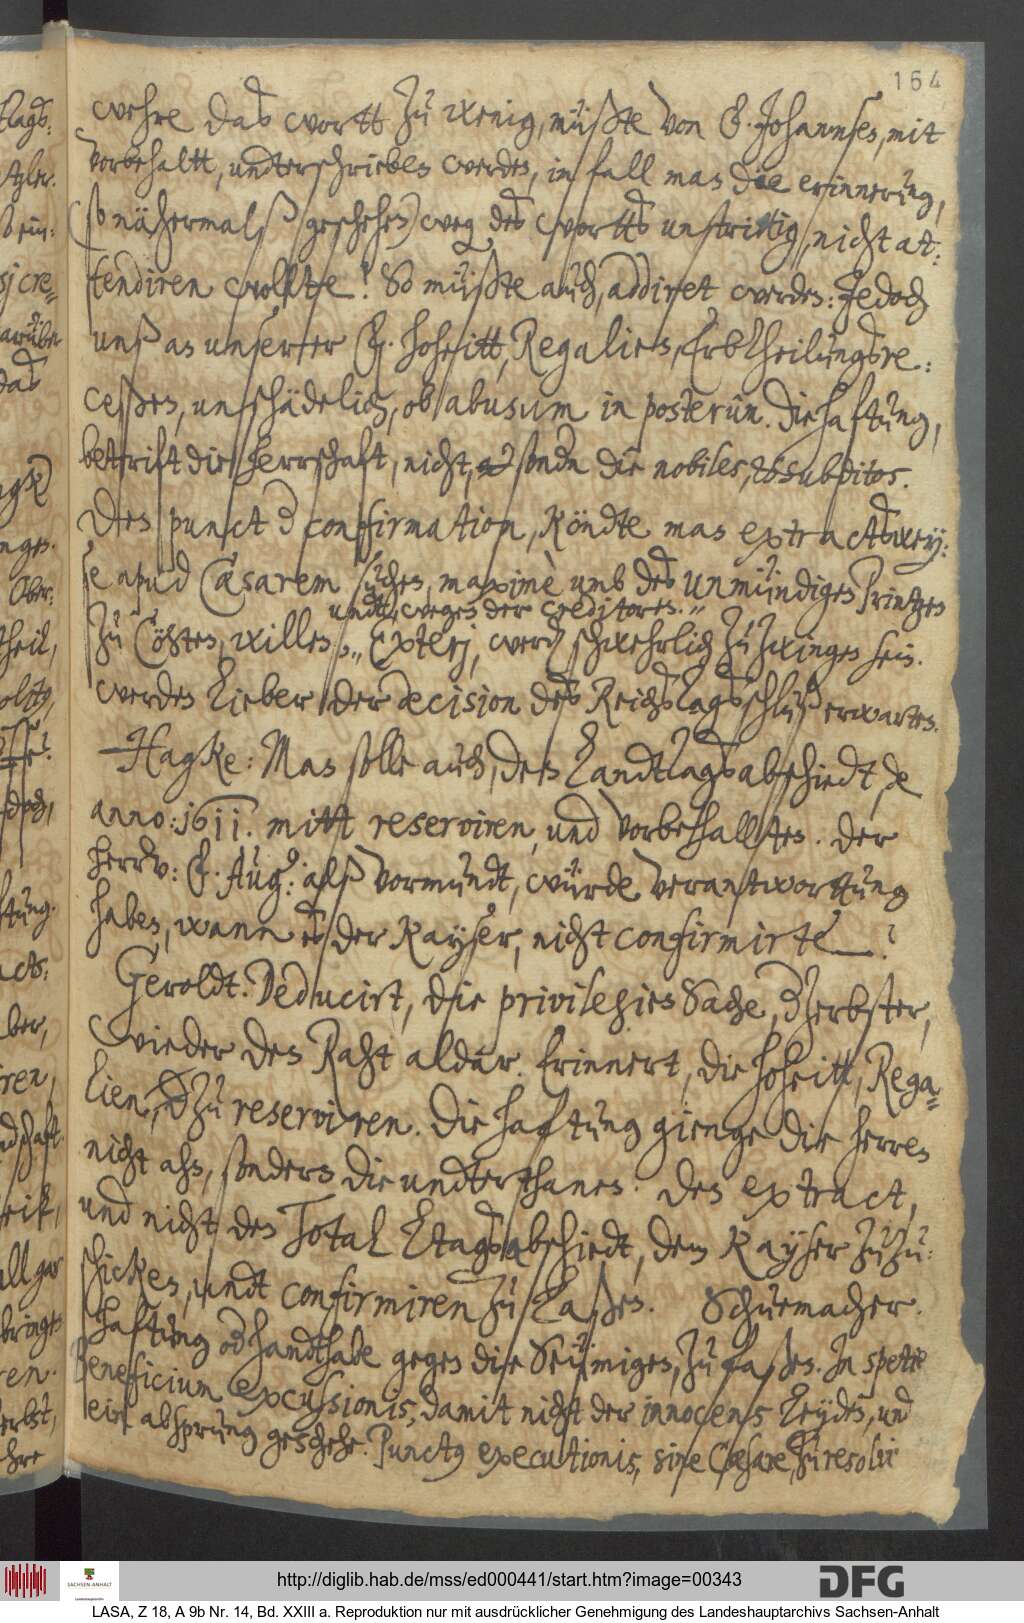 164
wehre das wortt zu wenig, müßte von F. Johannsen, mit
vorbehaltt, undterschrieben werden, in fall man die erinnerung,
(so nähermalß geschehen) weg des worttes unstrittig, nicht at:
tendiren wollte! So müßte auch, addiret werden: Jedoch
unß an unserer F. Hoheitt, Regalien, Erbtheilungsre:
ceßen, unschädelich, ob abusum in posterum. Die haftung,
betrift die herrschaft, nicht, sondern die nobiles, et subditos.
Den punct der confirmation, köndte man extractswey:
se apud Cæsarem suchen, maximè umb des unmündigen Printzen
undt, wegen der creditoren.
zu Cöhten, willen. Extlej, werden schwehrlich zu zwingen sein.
werden lieber der decision des Reichstagsschluß erwarten.
Hagke: Man solle auch, den Landttagsabschiedt, de
anno: 1611. mitt reserviren, und vorbehallten. der
herr v: F. Aug: alß vormundt, würde verantwortung
haben, wann es der Kayser, nicht confirmirte?
Geroldt. Deducirt, die privilegien Sache, der Zerbster,
wieder den Raht aldar. Erinnert, die hoheitt, Rega=
lien, zu reserviren. Die haftung gienge die herren
nicht ahn, sondern die undterthanen. den extract,
und nicht den Total Ltagsabschiedt, dem Kayser zuzu:
schicken, undt confirmiren zu laßen. Schuemacher.
haftung oder handthabe gegen die Seümigen, zu faßen. In specie
Beneficium excussionis, damit nicht der innocens leyde, und
ein absprung geschehe. Punctus executionis, sine Cæsare, zu resolvir
http://diglib.hab.de/mss/ed000441/start.htm?image=00343
SACHSEN-ANHALT
DFG
LASA, Z 18, A 9b Nr. 14, Bd. XXIII a. Reproduktion nur mit ausdrücklicher Genehmigung des Landeshauptarchivs Sachsen-Anhalt